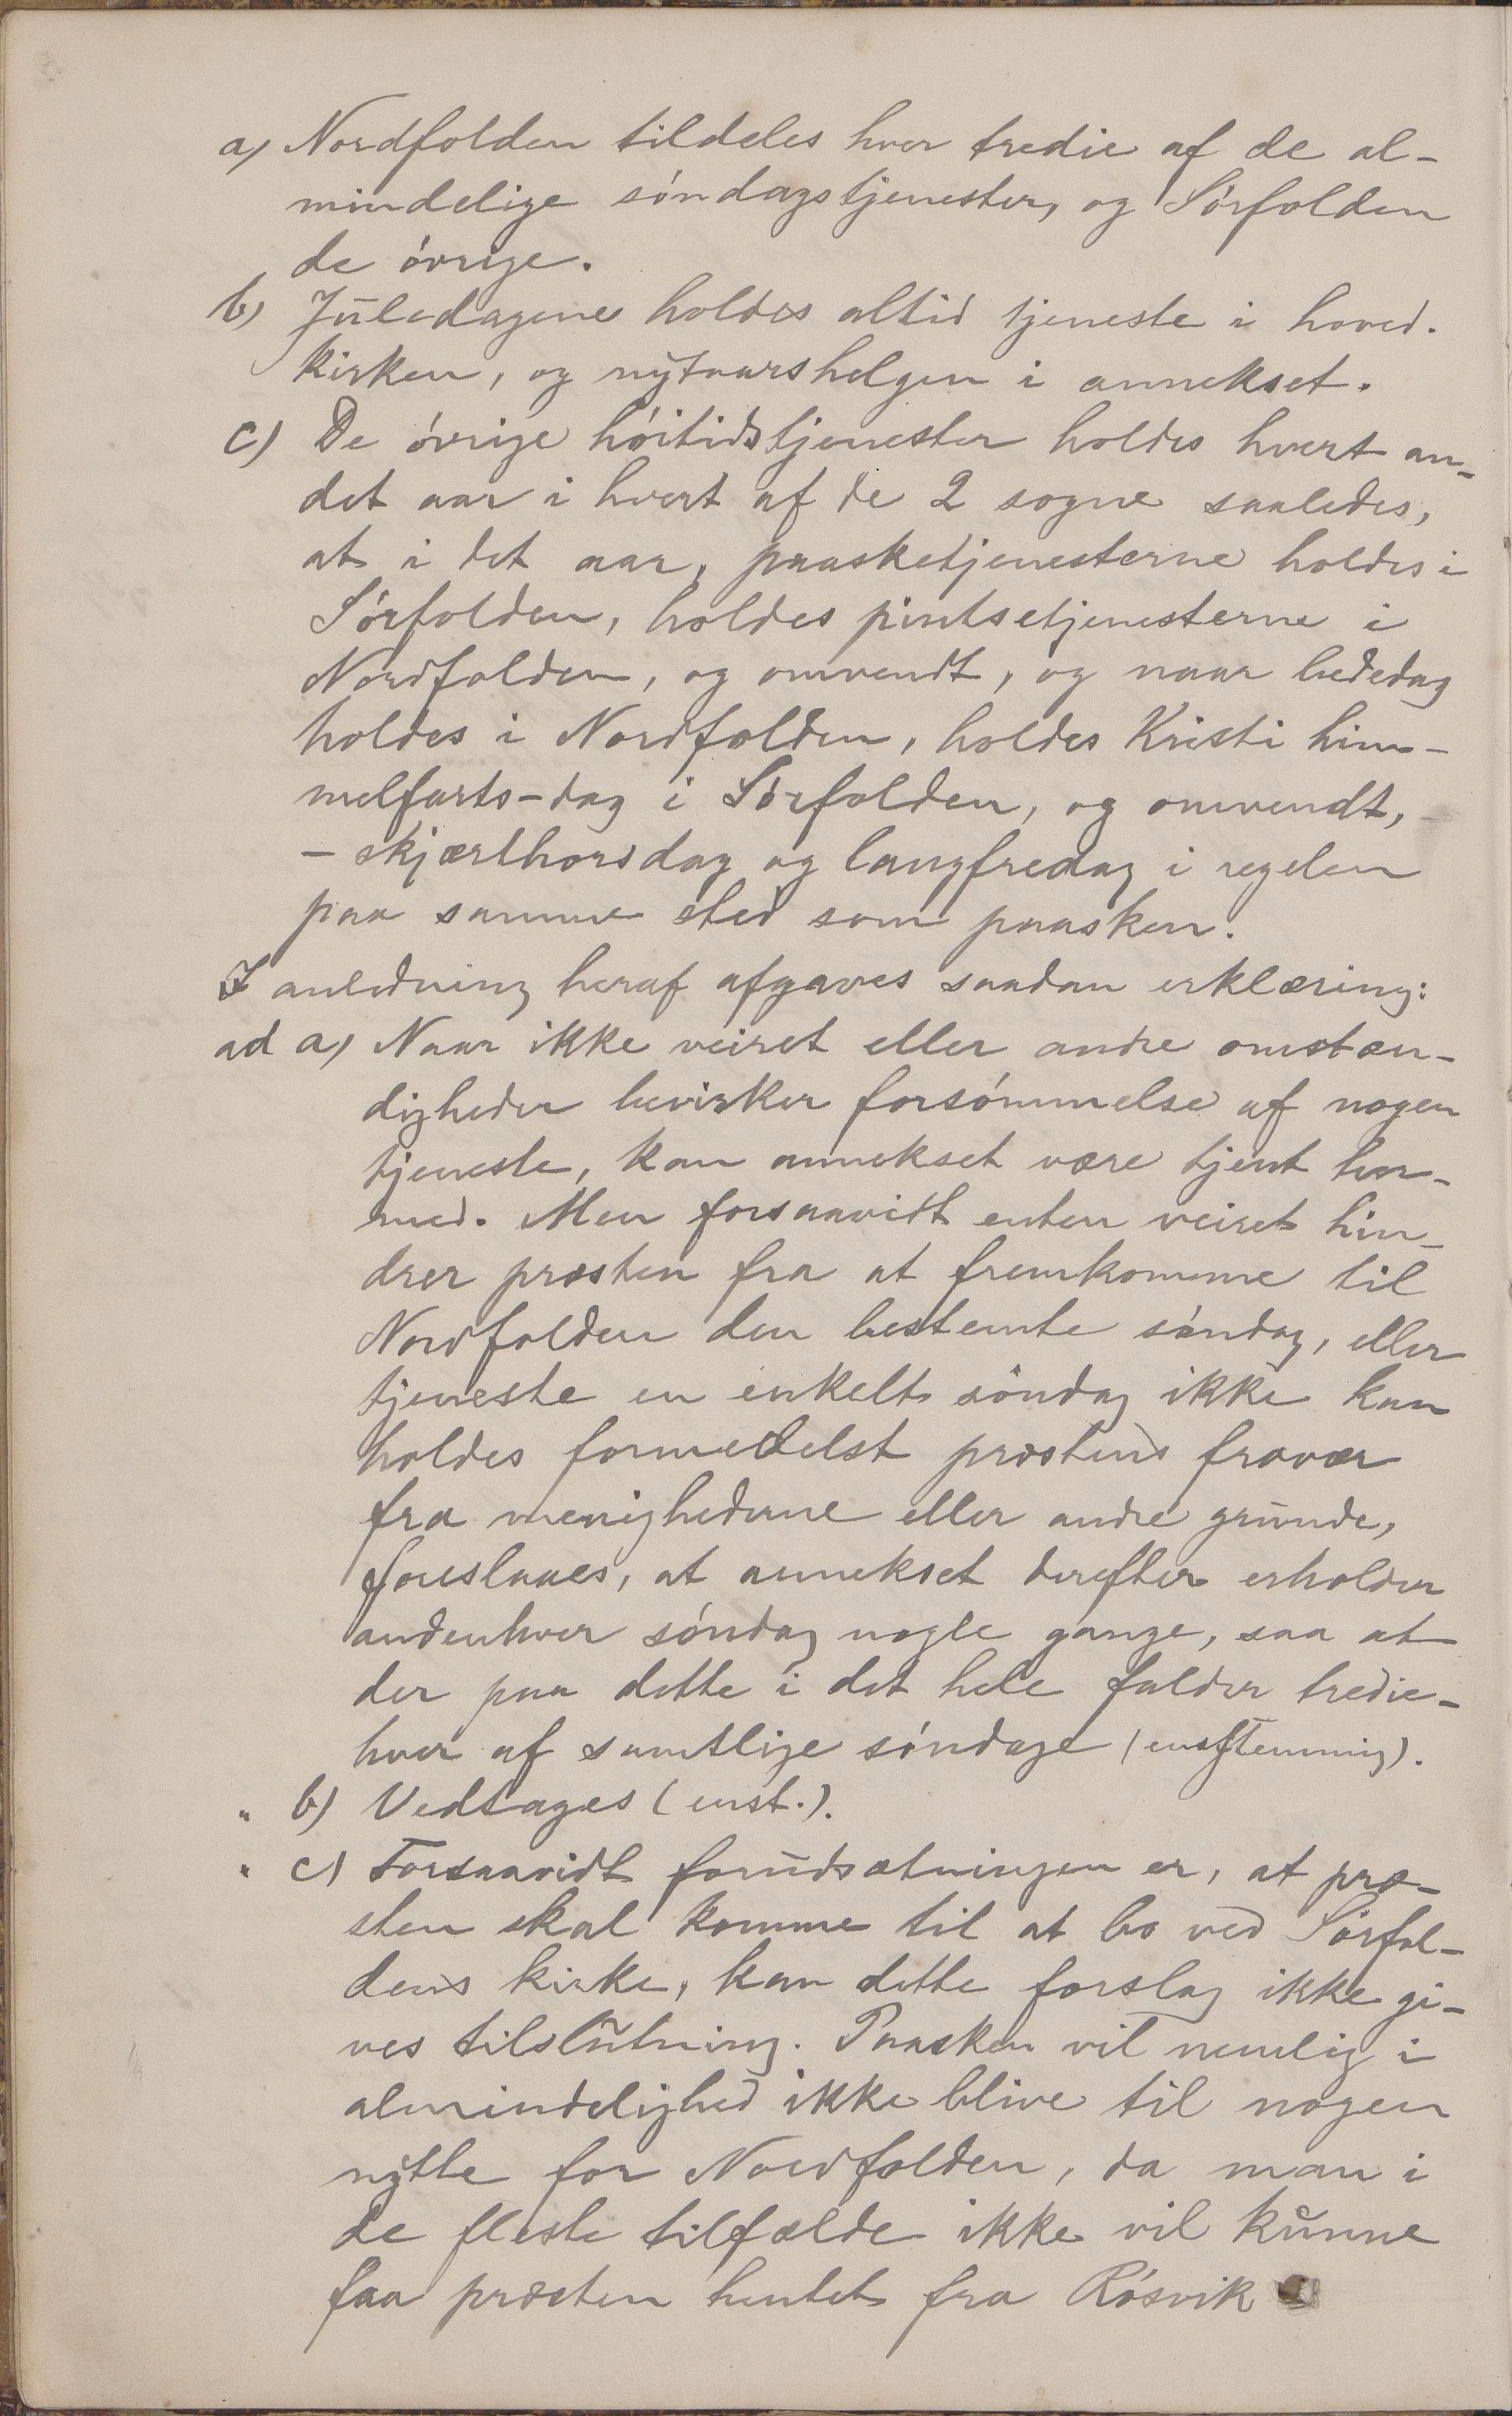 a) Nordfolden tildeles hver tredie af de al-
mindelige söndagstjenester, og Sörfolden
de övrige.
b) Juledagene holdes altid tjeneste i hoved-
kirken, og nytaarshelgen i annekset.
c) De övrige höitidstjenester holdes hvert an-
det aar i hvert af de 2 sogne saaledes,
at i det aar, paasketjenesterne holdes i
Sörfolden, holdes pintsetjenesterne i
Nordfolden, og omvendt, og naar bededag
holdes i Nordfolden, holdes Kristi him-
melfarts-dag i Sörfolden, og omvendt,
– skjærthorsdag og langfredag i regelen
paa samme sted som paasken.
I anledning heraf afgaves saadan erklæring:
ad a) Naar ikke veiret eller andre omstæn-
digheder bevirker forsömmelse af nogen
tjeneste, kan annekset være tjent her-
med. Men forsaavidt enten veiret hin-
drer præsten fra at fremkomme til
Nordfolden den bestemte söndag, eller
tjeneste en enkelt söndag ikke kan
holdes formedelst præstens fravær
fra menighederne eller andre grunde,
foreslaaes, at annekset derefter erholder
andenhver söndag nogle gange, saa at
der paa dette i det hele falder tredie-
hver af samtlige söndage (enstemmig).
" b) Vedtages (enst.).
" c) Forsaavidt forudsætningen er, at præ-
sten skal komme til at bo ved Sörfol-
dens kirke, kan dette forslag ikke gi-
ves tilslutning. Paasken vil nemlig i
almindelighed ikke blive til nogen
nytte for Nordfolden, da man i
de fleste tilfælde ikke vil kunne
faa præsten hentet fra Rösvik